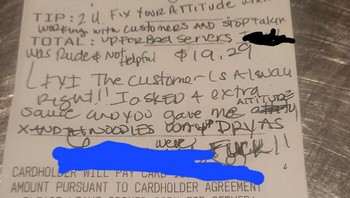 TIP: 2 U FIX YOUR ATTITUDE WHEN
WORKING WITH CUSTOMERS AND STOP TAKIN
TOTAL: UP FOR BAD SERVERS
WAS RUDE & NOT Helpful $19.29
(FYI The Customer Is Alway
Right!! I ASKED 4 extra
ATTITUDE
Sauce and you gave me
X AND THE NOODLES DRY AS
were FUCK!!
CARDHOLDER WILL PAY CARD
AMOUNT PURSUANT TO CARDHOLDER AGREEMENT